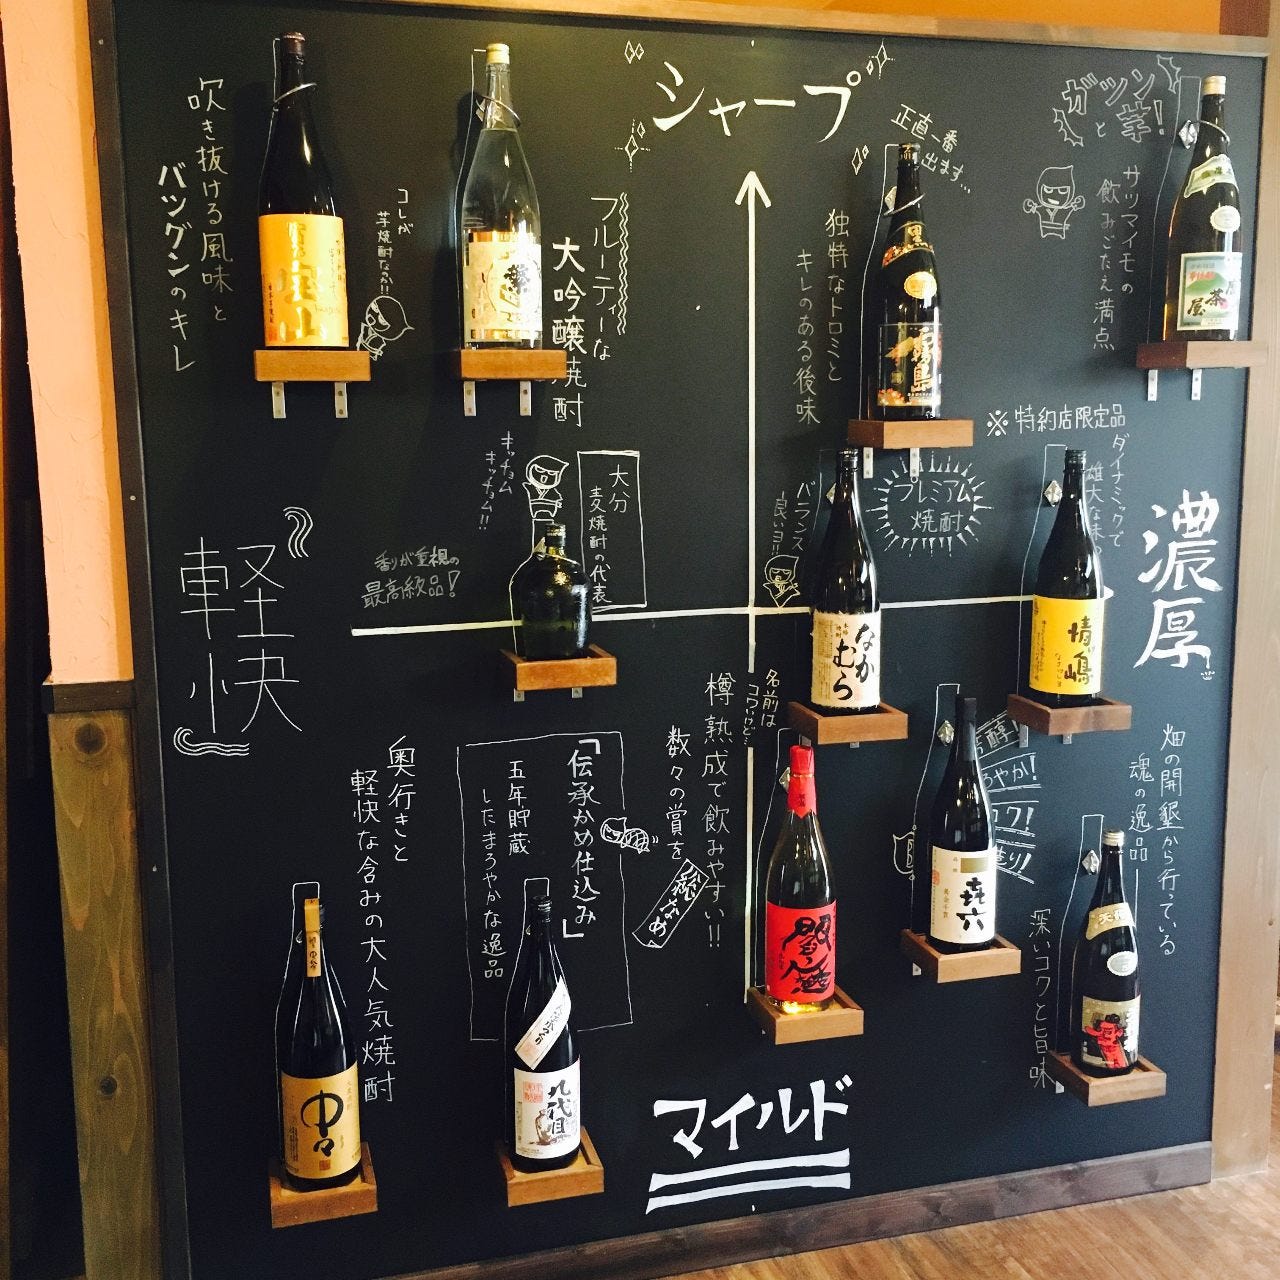 シャープ
ガツンと
芋!
サツマイモの
飲みごたえ満点
正直一番
出ます…
独特なトロミと
キレのある後味
フルーティーな
大吟醸焼酎
コレが
芋焼酎なのか!!
吹き抜ける風味と
バツグンのキレ
宝山
黒
霧島
茶
屋
※特約店限定品
ダイナミックで
雄大な味の
プレミアム
焼酎
バランス
良いヨ!!
大分
麦焼酎の代表
キッチョム
キッチョム!!
香りが重視の
最高級品!
軽快
濃厚
なかむら
名前は
コワいけど…
樽熟成で飲みやすい!!
数々の賞を
総なめ
「伝承かめ仕込み」
五年貯蔵
したまろやかな逸品
奥行きと
軽快な含みの大人気焼酎
中々
九代目
㐂六
畑の開墾から行っている
魂の逸品
深いコクと旨味
マイルド